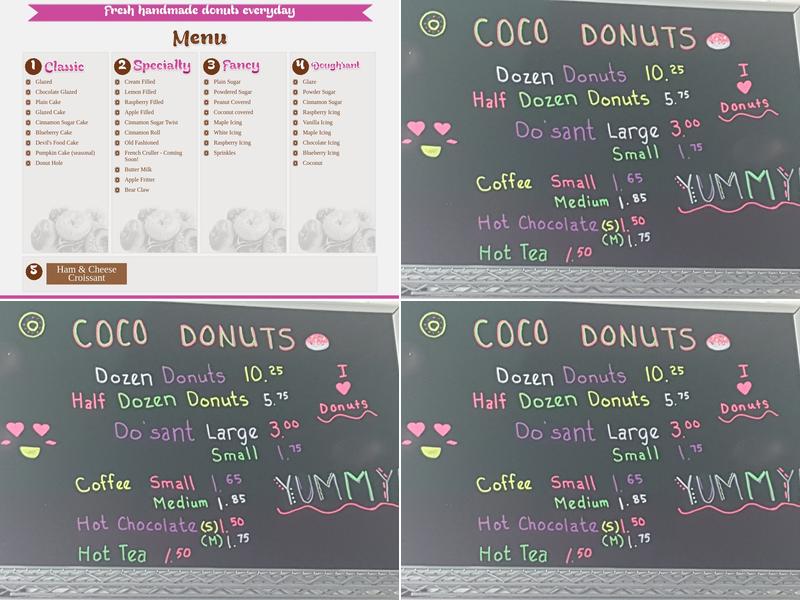 Fresh handmade donuts everyday
Menu
1 Classic
Glazed
Chocolate Glazed
Plain Cake
Glazed Cake
Cinnamon Sugar Cake
Blueberry Cake
Devil's Food Cake
Pumpkin Cake (seasonal)
Donut Hole
2 Specialty
Cream Filled
Lemon Filled
Raspberry Filled
Apple Filled
Cinnamon Sugar Twist
Cinnamon Roll
Old Fashioned
French Cruller - Coming
Soon!
Butter Milk
Apple Fritter
Bear Claw
3 Fancy
Plain Sugar
Powdered Sugar
Peanut Covered
Coconut covered
Maple Icing
White Icing
Raspberry Icing
Sprinkles
4 Dough'sant
Glaze
Powder Sugar
Cinnamon Sugar
Raspberry Icing
Vanilla Icing
Maple Icing
Chocolate Icing
Blueberry Icing
Coconut
5 Ham & Cheese
Croissant
COCO DONUTS
Dozen Donuts 10.25
Half Dozen Donuts 5.75
Do'sant Large 3.00
Small 1.75
Coffee Small 1.65
Medium 1.85
Hot Chocolate (S) 1.50
(M) 1.75
Hot Tea 1.50
I
Donuts
YUMMY
COCO DONUTS
Dozen Donuts 10.25
Half Dozen Donuts 5.75
Do'sant Large 3.00
Small 1.75
Coffee Small 1.65
Medium 1.85
Hot Chocolate (S) 1.50
(M) 1.75
Hot Tea 1.50
I
Donuts
YUMMY
COCO DONUTS
Dozen Donuts 10.25
Half Dozen Donuts 5.75
Do'sant Large 3.00
Small 1.75
Coffee Small 1.65
Medium 1.85
Hot Chocolate (S) 1.50
(M) 1.75
Hot Tea 1.50
I
Donuts
YUMMY